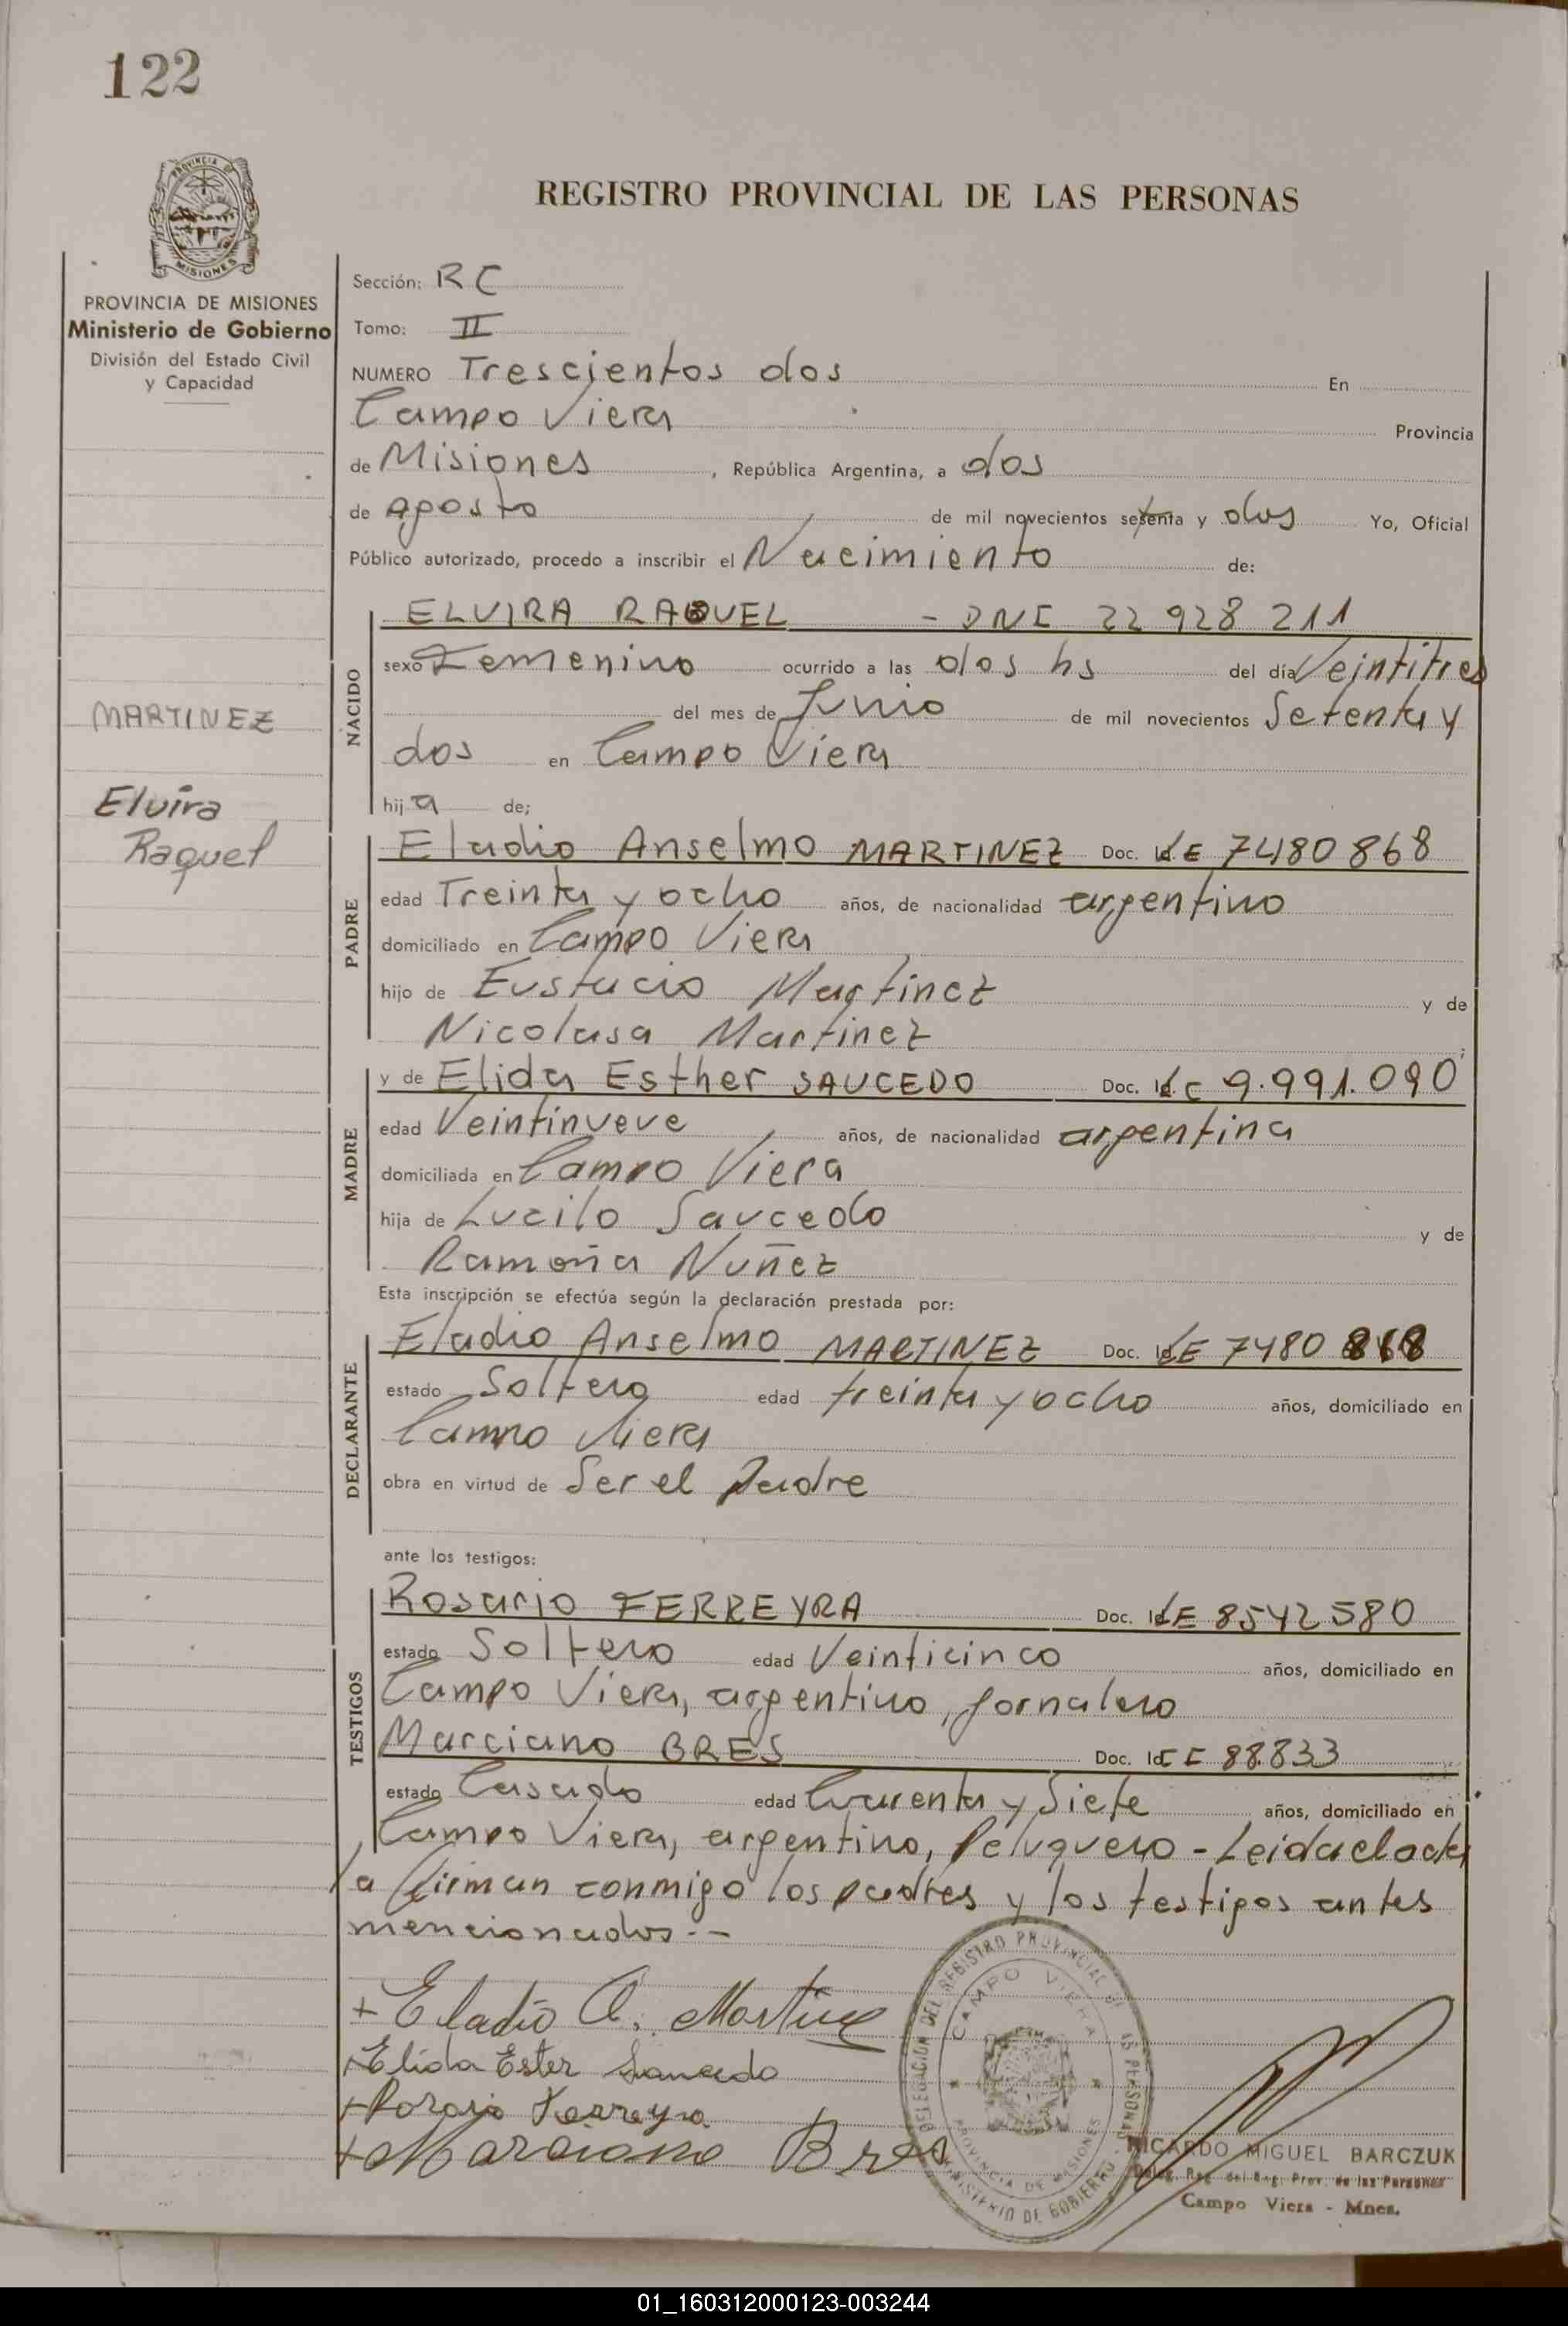 122
PROVINCIA DE
MISIONES
REGISTRO PROVINCIAL DE LAS PERSONAS
PROVINCIA DE MISIONES
Ministerio de Gobierno
División del Estado Civil
y Capacidad
Sección: RC
Tomo: II
NUMERO Trescientos dos En
Campo Viera Provincia
de Misiones, República Argentina, a dos
de agosto de mil novecientos setenta y dos Yo, Oficial
Público autorizado, procedo a inscribir el Nacimiento de:
NACIDO
ELVIRA RAQUEL - DNI 22 928 211
sexo Femenino ocurrido a las dos hs del día Veintitres
del mes de Junio de mil novecientos Setenta y
dos en Campo Viera
hija de;
MARTINEZ
Elvira
Raquel
PADRE
Eladio Anselmo MARTINEZ Doc. Id. LE 7480868
edad Treinta y ocho años, de nacionalidad argentino
domiciliado en Campo Viera
hijo de Eustacio Martinez y de
Nicolasa Martinez
MADRE
y de Elida Esther SAUCEDO Doc. Id. LC 9.991.090
edad Veintinueve años, de nacionalidad argentina
domiciliada en Campo Viera
hija de Lucilo Saucedo y de
Ramona Nuñez
Esta inscripción se efectúa según la declaración prestada por:
DECLARANTE
Eladio Anselmo MARTINEZ Doc. Id. LE 7480 868
estado Soltero edad treinta y ocho años, domiciliado en
Campo Viera
obra en virtud de Ser el Padre
ante los testigos:
TESTIGOS
Rosario FERREYRA Doc. Id. LE 8542580
estado Soltero edad Veinticinco años, domiciliado en
Campo Viera, argentino, Jornalero
Marciano BRES Doc. Id. CE 88.833
estado Casado edad Cuarenta y Siete años, domiciliado en
Campo Viera, argentino, Peluquero - Leida el acta
la firman conmigo los padres y los testigos antes
mencionados.-
+ Eladio A. Martinez
+ Elida Ester Saucedo
+ Rosario Ferreyra
+ Marciano Bres
DELEGACION DEL REGISTRO PROVINCIAL DE LAS PERSONAS
CAMPO VIERA
PROVINCIA DE MISIONES
MINISTERIO DE GOBIERNO
RICARDO MIGUEL BARCZUK
Deleg. Reg. del Reg. Prov. de las Personas
Campo Viera - Mnes.
01_160312000123-003244